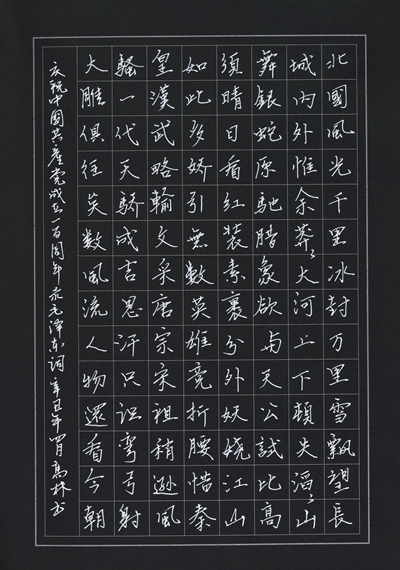 北國風光千里冰封万里雪飄望長
城内外惟余莽〻大河上下頓失滔〻山
舞銀蛇原馳腊象欲与天公試比高
須晴日看红装素裹分外妖娆江山
如此多娇引無數英雄竞折腰惜秦
皇漢武略輸文采唐宗宋祖稍逊風
騷一代天骄成吉思汗只识彎弓射
大雕俱往矣数風流人物還看今朝
庆祝中國共產党成立一百周年录毛泽东词 辛丑年四月高林书